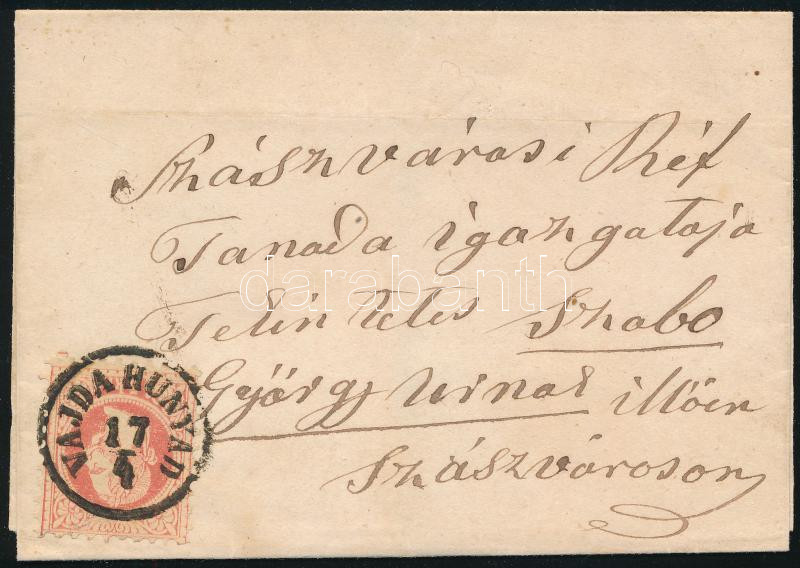 Szászvárosi Réf
Tanoda igazgatoja
Tekin tetes Szabo
György Urnak illöen
Szászvároson
VAJDA HUNYAD
17
4
darabanth